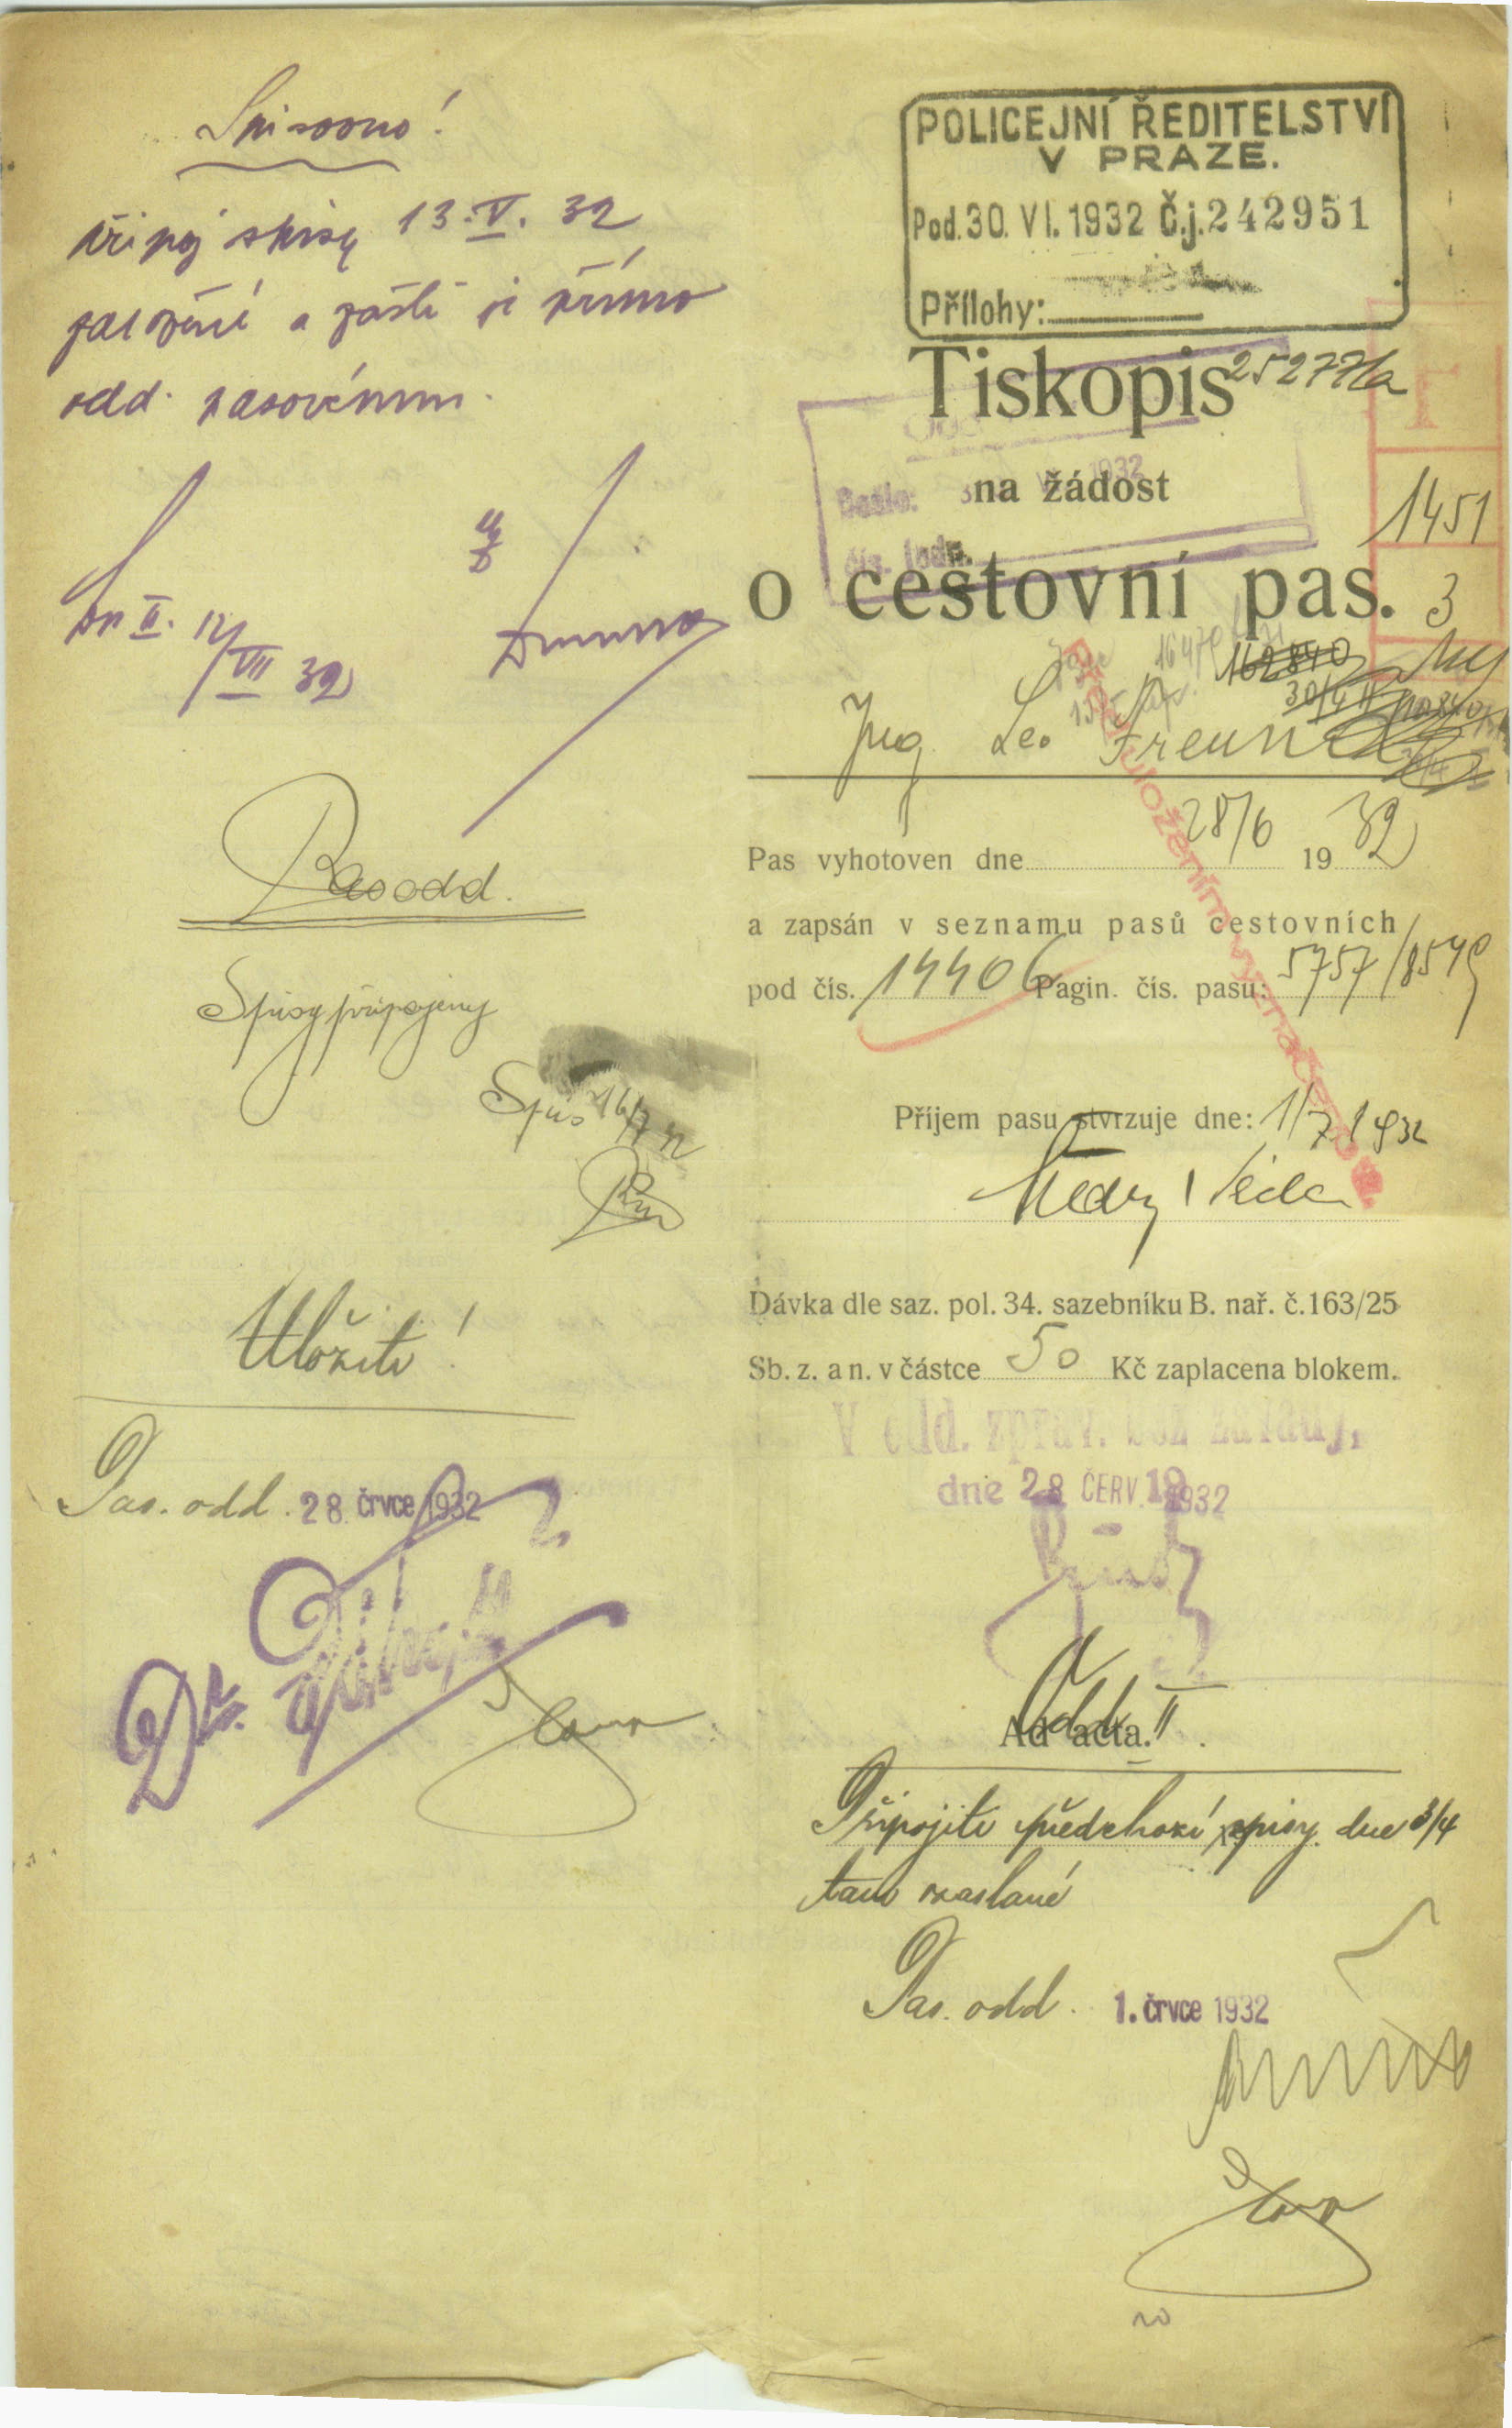 Spisovna!
připoj spisy 13.V. 32
založené a zašli je přímo
odd. pasovému.
II. 12/VII 32
Pas odd.
Spisy připojeny
Spis 16/7 32
Uložiti!
Pas. odd. 28. črvce 1932
Dr.
POLICEJNÍ ŘEDITELSTVÍ
V PRAZE.
Pod. 30. VI. 1932 Č.j. 242951
Přílohy:
Tiskopis
25277/a
na žádost
Došlo: 1932
čís. jedn.
1451
o cestovní pas.
3
162840
30/4
Ing Leo Freund
Pas vyhotoven dne 28/6 1932
a zapsán v seznamu pasů cestovních
pod čís. 14406 Pagin. čís. pasu: 5757/
Před uložením vyznačeno
Příjem pasu stvrzuje dne: 1/7 1932
Dávka dle saz. pol. 34. sazebníku B. nař. č. 163/25
Sb. z. a n. v částce 50 Kč zaplacena blokem.
V odd. zpráv. bez závady,
dne 28 ČERV. 1932
Ad acta.
Odd. II.
Připojiti předchozí spisy dne 3/4
tam zaslané
Pas. odd. 1. črvce 1932